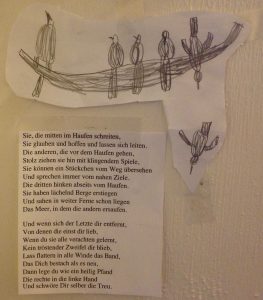 Sie, die mitten im Haufen schreiten,
Sie glauben und hoffen und lassen sich leiten,
Die anderen, die vor dem Haufen gehen,
Stolz ziehen sie hin mit klingendem Spiele,
Sie können ein Stückchen vom Weg übersehen
Und sprechen immer vom nahen Ziele.
Die dritten hinken abseits vom Haufen.
Sie haben lächelnd Berge erstiegen
Und sahen in weiter Ferne schon liegen
Das Meer, in dem die andern ersaufen.
Und wenn sich der Letzte dir entfernt,
Von denen die einst dir lieb,
Wenn du sie alle verachten gelernt,
Kein tröstender Zweifel dir blieb,
Lass flattern in alle Winde das Band,
Das Dich bestach als es neu,
Dann lege du wie ein heilig Pfand
Die rechte in die linke Hand
Und schwöre Dir selber die Treu.